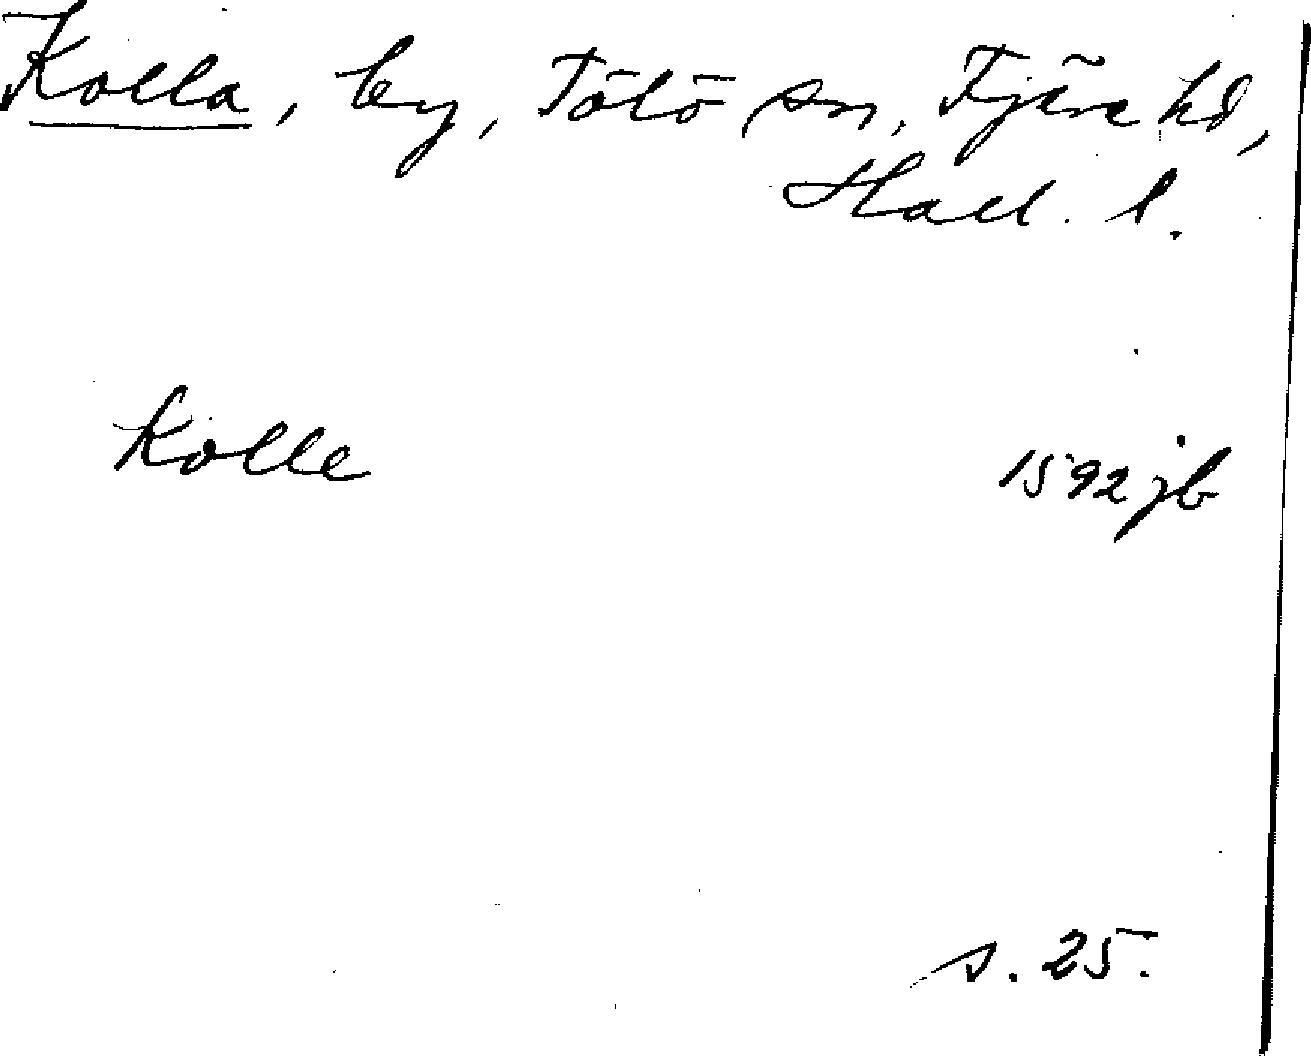 Kolla, by, Tölö sn, Fjäre hd,
Hall. l.
Kolle 1592 jb
s. 25.